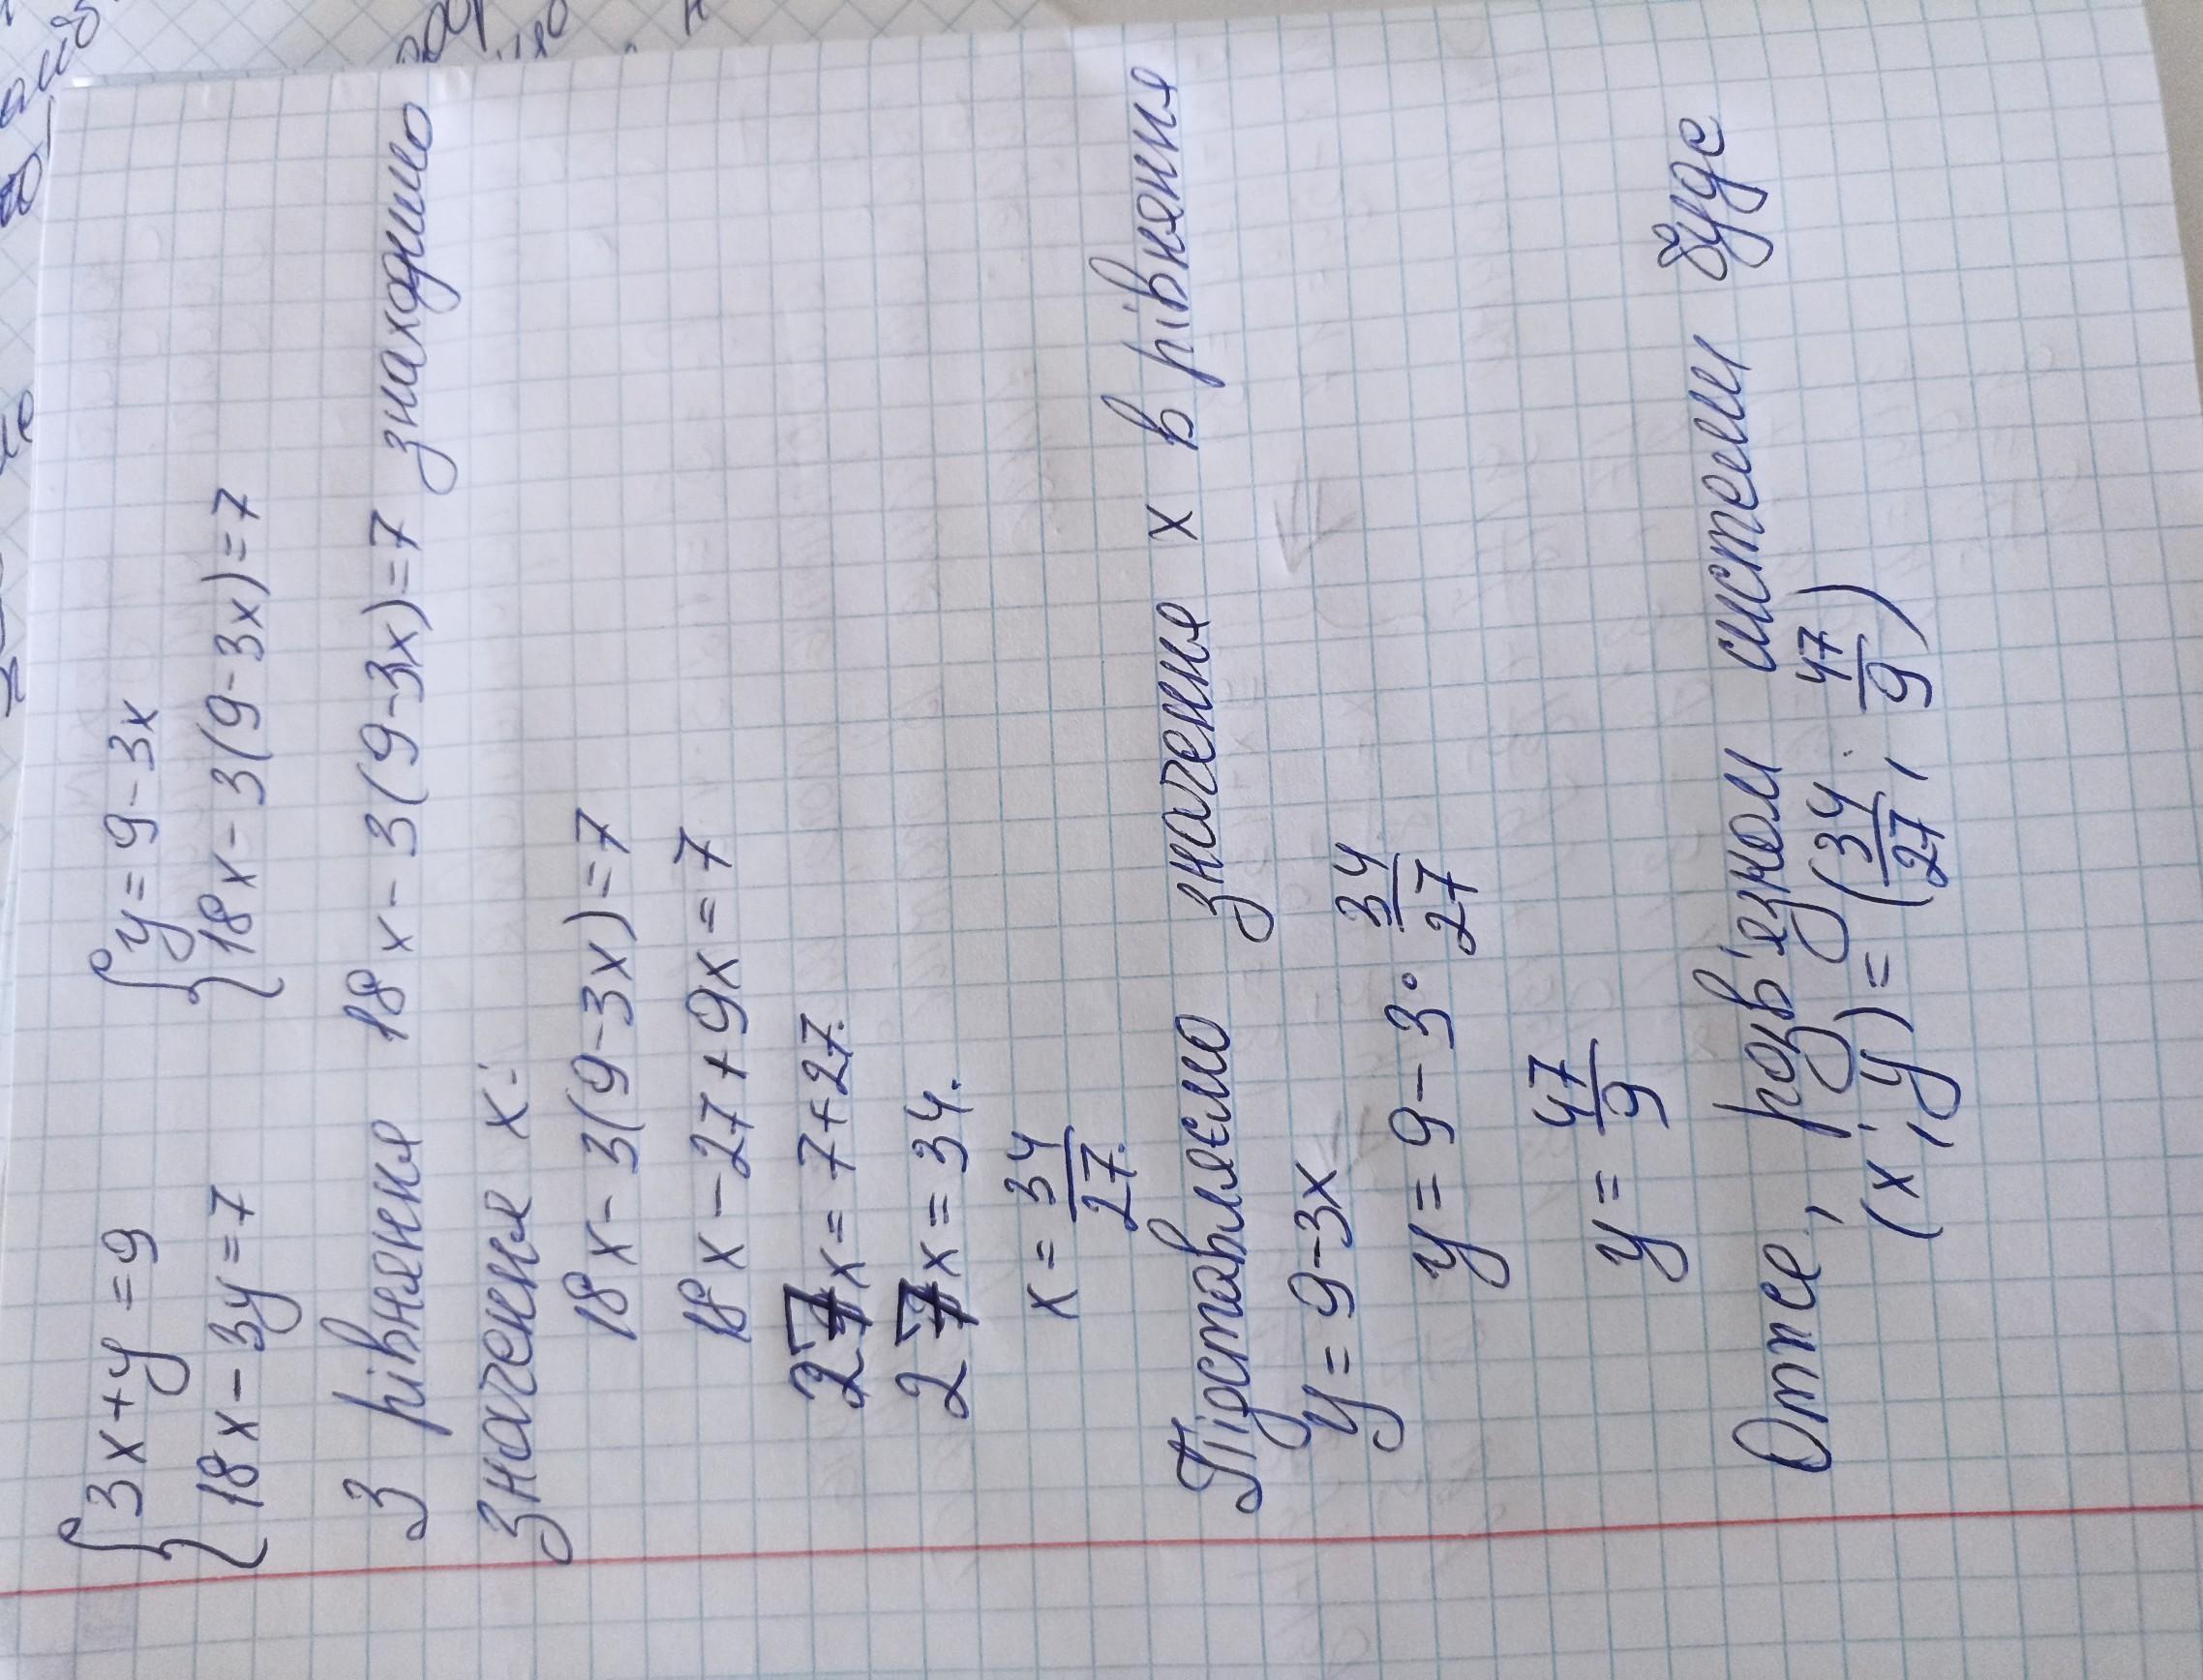 {3x+y=9 {y=9-3x
{18x-3y=7 {18x-3(9-3x)=7
З рівняння 18x-3(9-3x)=7 знаходимо
значення x:
18x-3(9-3x)=7
18x-27+9x=7
27x=7+27.
27x=34.
x=34/27.
Підставляємо значення x в рівняння
y=9-3x
y=9-3·34/27
y=47/9
Отже, розв'язком системи буде
(x;y)=(34/27; 47/9)